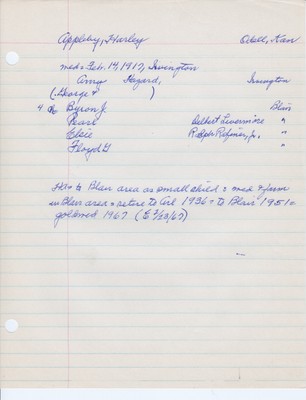 Appleby, Harley Odell, Kan
med: Feb. 14, 1917, Irvington
Amy Hazard, Irvington
(George & )
4 ch Byron J. Blair
Pearl Delbert Livermore "
Elsie Ralph Jr. "
Floyd G
to Blair area as small child & med & farm
in Blair area & retire to Arl 1936 & to Blair 1951
goldwed 1967 (E 3/20/67)